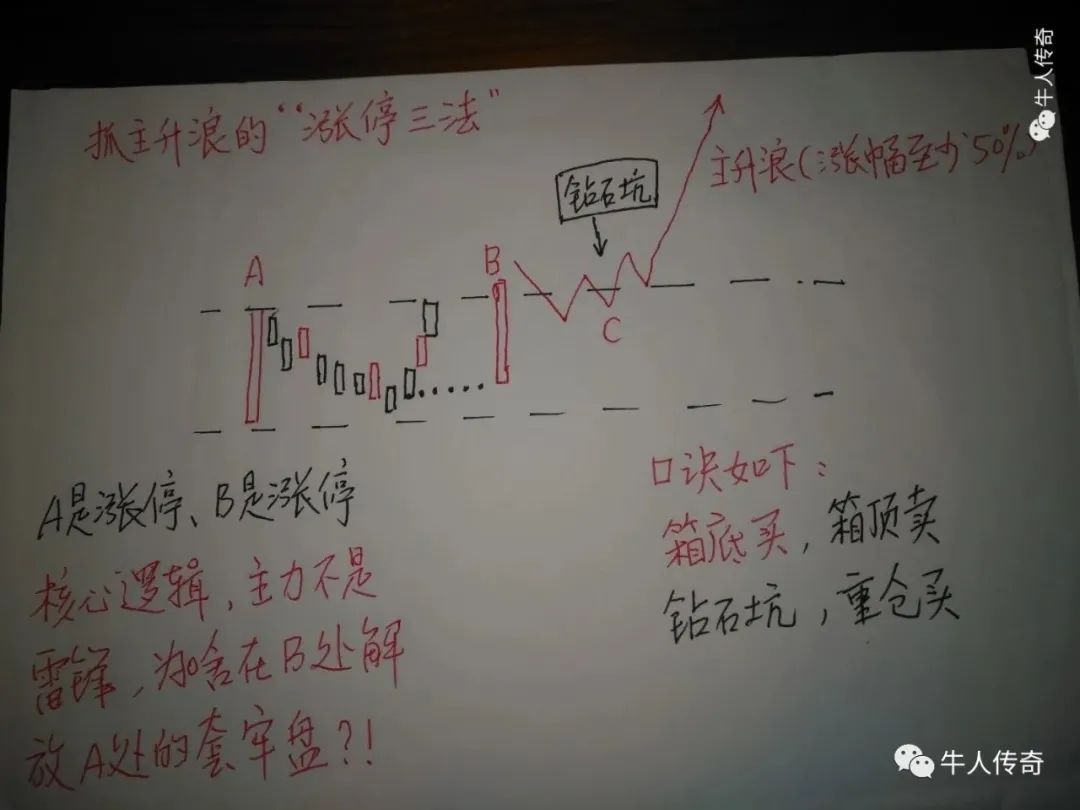 牛人传奇
抓主升浪的“涨停三法”
主升浪(涨幅至少50%)
钻石坑
A
B
C
A是涨停、B是涨停
核心逻辑,主力不是
雷锋,为啥在B处解
放A处的套牢盘?!
口诀如下:
箱底买,箱顶卖
钻石坑,重仓买
牛人传奇